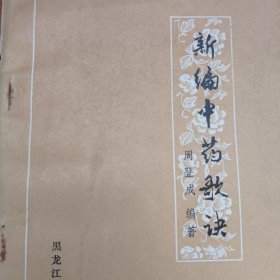 新编中药歌诀
周登成 编著
黑龙江